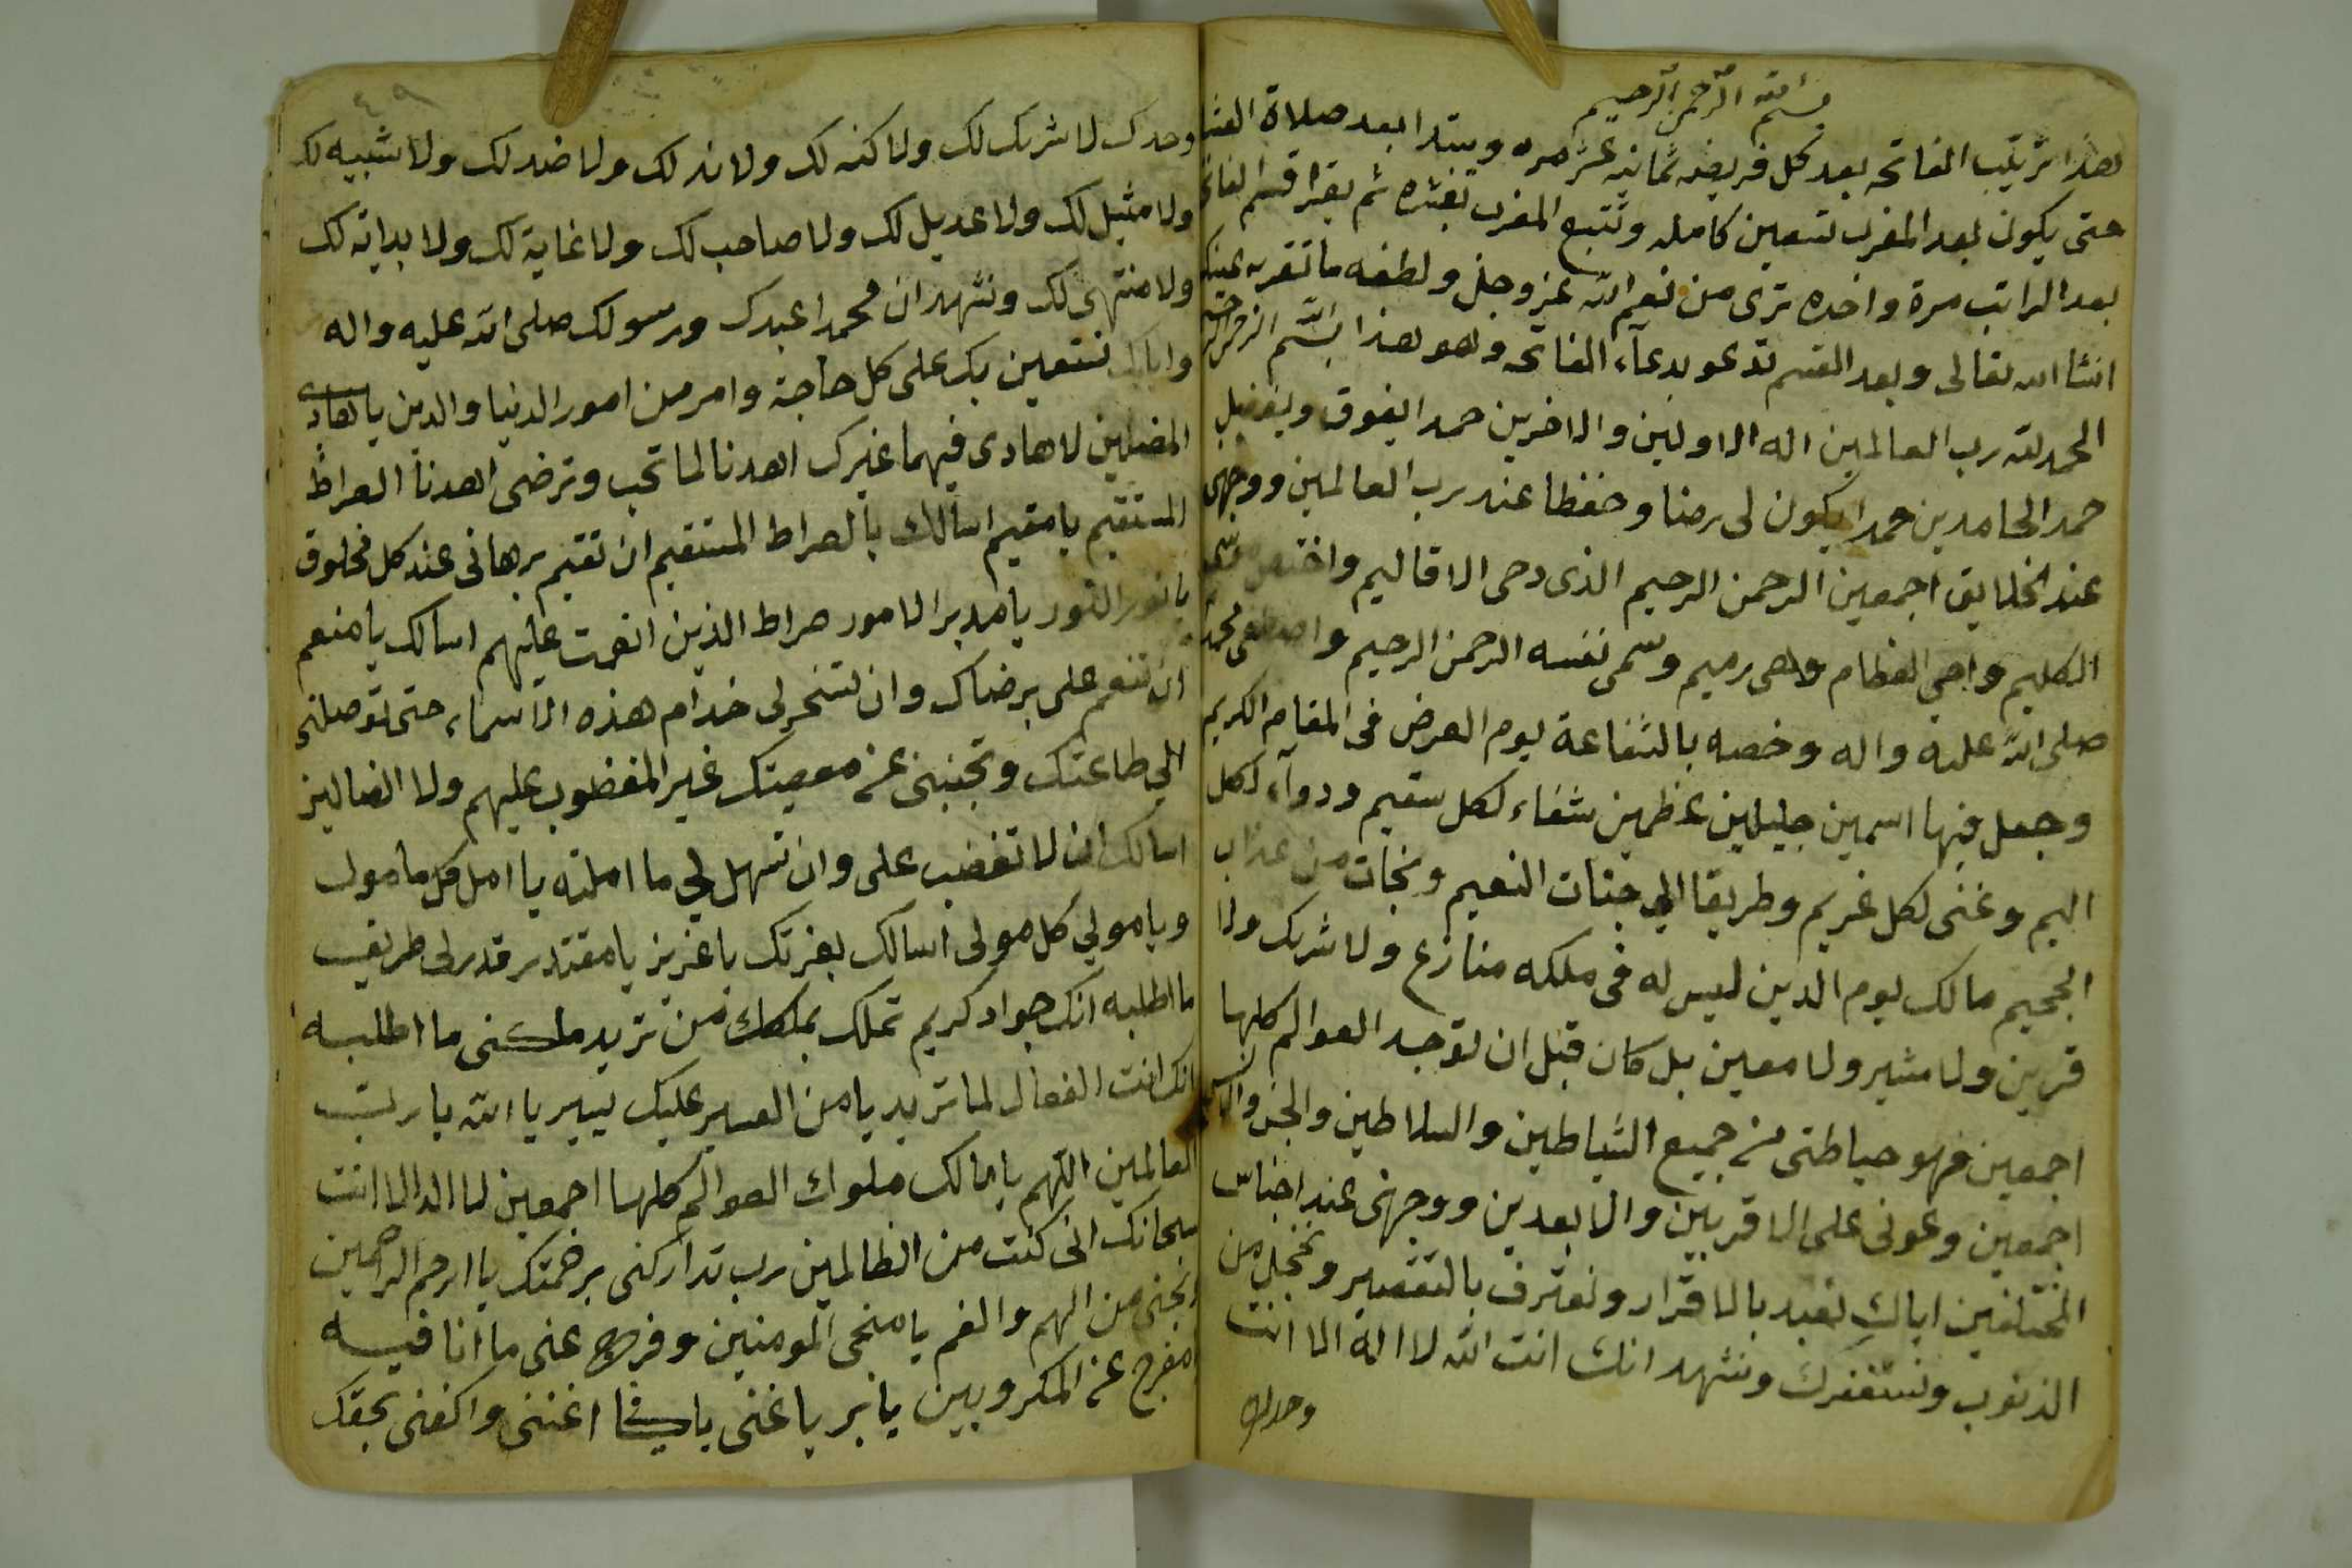 بسم الله الرحمن الرحيم
هذا ترتيب الفاتحه بعد كل فريضه ثمانيه عشر مره ويبتدا بعد صلاة العشا
حتى يكون بعد المغرب تسعين كامله وتتبع المغرب بعشره ثم يقرا قسم الفاتحه
بعد الراتب مرة واحده ترى من نعم الله عز وجل ولطفه ما تقر به عينك
انشا الله تعالى وبعد القسم تدعو بدعآء الفاتحه وهو هذا بسم الله الرحمن الرحيم
الحمد لله رب العالمين اله الاولين والاخرين حمدا يفوق ويفضل
حمد الحامدين حمدا يكون لى رضا وحفظا عند رب العالمين ووجهى
عند الخلايق اجمعين الرحمن الرحيم الذى دحى الاقاليم واختص موسى
الكليم واحيي العظام وهى رميم وسمى نفسه الرحمن الرحيم واصطفى محمد
صلى الله عليه واله وخصه بالشفاعة يوم العرض فى المقام الكريم
وجعل فيها اسمين جليلين عظمين شفاء لكل سقيم ودوآء لكل
اليم وغنى لكل غريم وطريقا الي جنات النعيم ونجات من عذاب
الجحيم مالك يوم الدين ليس له فى ملكه منازع ولا شريك ولا
قرين ولا مشير ولا معين بل كان قبل ان توجد العوالم كلها
اجمعين فهو حياطتى من جميع الشياطين والسلاطين والجن والانس
اجمعين وعونى على الاقربين والابعدين ووجهنى عند اجناس
المختلفين اياك نعبد بالاقرار ونعترف بالتقصير ونخجل من
الذنوب ونستغفرك ونشهد انك انت الله لا اله الا انت
وحدك
٤٩
وحدك لا شريك لك ولا كنه لك ولا ند لك ولا ضد لك ولا شبيه لك
ولا مثيل لك ولا عديل لك ولا صاحب لك ولا غاية لك ولا بداية لك
ولا منتهى لك ونشهد ان محمدا عبدك ورسولك صلى الله عليه واله
واياك نستعين بك على كل حاجة وامر من امور الدنيا والدين يا هادى
المضلين لا هادى فيهما غيرك اهدنا لما تحب وترضى اهدنا الصراط
المستقيم يا مقيم اسالك بالصراط المستقيم ان تقيم برهانى عند كل مخلوق
يا نور النور يا مدبر الامور صراط الذين انعمت عليهم اسالك يا منعم
ان تنعم على برضاك وان تسخر لى خدام هذه الاسماء حتى توصلنى
الي طاعتك وتجنبنى عن معصيتك غير المغضوب عليهم ولا الضالين
اسالك ان لا تغضب على وان تسهل لي ما املته يا امل كل مامول
ويا مولي كل مولى اسالك بعزتك يا عزيز يا مقتدر قدر لى طريف
ما اطلبه انك جواد كريم تملك بملكك من تريد ملكنى ما اطلبه
انك انت الفعال لما تريد يا من العسير عليك يسير يا الله يا رب
العالمين اللهم يا مالك ملوك العوالم كلها اجمعين لا اله الا انت
سبحانك انى كنت من الظالمين رب تداركنى برحمتك يا ارحم الراحمين
ونجنى من الهم والغم يا منجى المومنين وفرج عنى ما انا فيه
يا مفرج عن المكروبين يا بر يا غنى يا كافى اغننى واكفنى بحقك